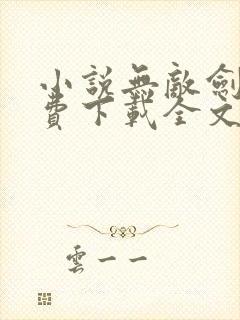 小說無敵劍
費下載全文
雲一一